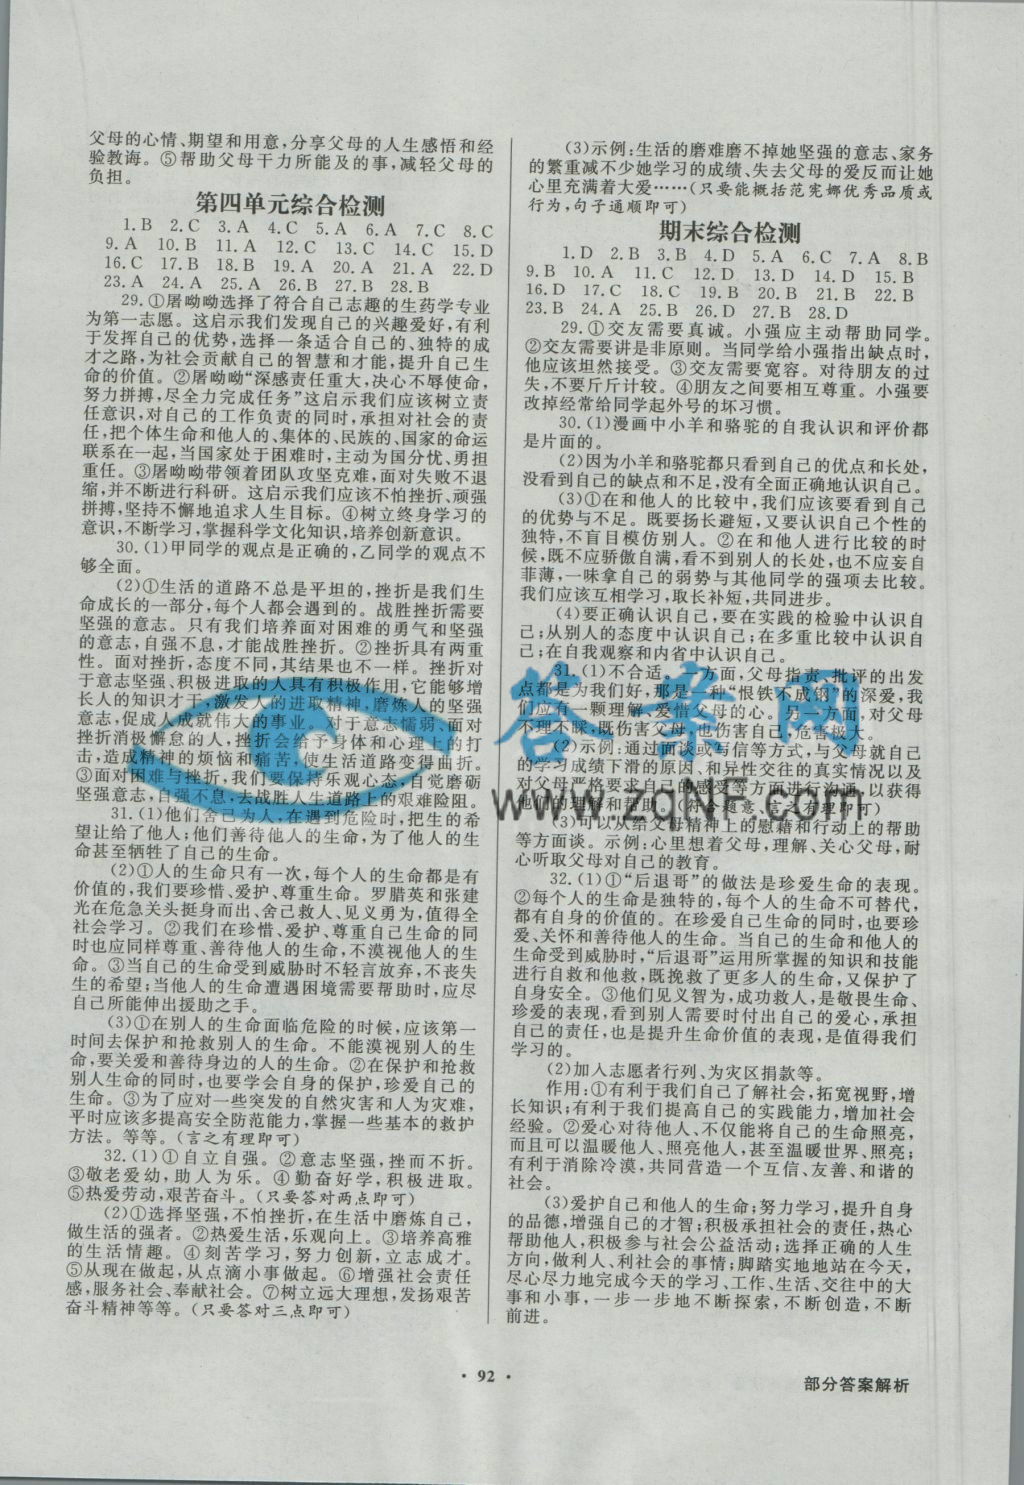 父母的心情、期望和用意,分享父母的人生感悟和经
验教诲。⑤帮助父母干力所能及的事,减轻父母的
负担。
第四单元综合检测
1. B 2. C 3. A 4. C 5. A 6. A 7. C 8. C
9. A 10. B 11. A 12. C 13. C 14. C 15. D
16. C 17. B 18. B 19. A 20. A 21. A 22. D
23. A 24. A 25. A 26. B 27. B 28. B
29. ①屠呦呦选择了符合自己志趣的生药学专业
为第一志愿。这启示我们发现自己的兴趣爱好,有利
于发挥自己的优势,选择一条适合自己的、独特的成
才之路,为社会贡献自己的智慧和才能,提升自己生
命的价值。②屠呦呦“深感责任重大,决心不辱使命,
努力拼搏,尽全力完成任务”这启示我们应该树立责
任意识,对自己的工作负责的同时,承担对社会的责
任,把个体生命和他人的、集体的、民族的、国家的命运
联系在一起,当国家处于困难时,主动为国分忧、勇担
重任。③屠呦呦带领着团队攻坚克难,面对失败不退
缩,并不断进行科研。这启示我们应该不怕挫折、顽强
拼搏,坚持不懈地追求人生目标。④树立终身学习的
意识,不断学习,掌握科学文化知识,培养创新意识。
30. (1)甲同学的观点是正确的,乙同学的观点不
够全面。
(2)①生活的道路不总是平坦的,挫折是我们生
命成长的一部分,每个人都会遇到的。战胜挫折需要
坚强的意志。只有我们培养面对困难的勇气和坚强
的意志,自强不息,才能战胜挫折。②挫折具有两重
性。面对挫折,态度不同,其结果也不一样。挫折对
于意志坚强、积极进取的人具有积极作用,它能够增
长人的知识才干,激发人的进取精神,磨炼人的坚强
意志,促成人成就伟大的事业。对于意志懦弱、面对
挫折消极懈怠的人,挫折会给予身体和心理上的打
击,造成精神的烦恼和痛苦,使生活道路变得曲折。
③面对困难与挫折,我们要保持乐观心态,自觉磨砺
坚强意志,自强不息,去战胜人生道路上的艰难险阻。
31. (1)他们舍己为人,在遇到危险时,把生的希
望让给了他人;他们善待他人的生命,为了他人的生
命甚至牺牲了自己的生命。
(2)①人的生命只有一次,每个人的生命都是有
价值的,我们要珍惜、爱护、尊重生命。罗腊英和张建
光在危急关头挺身而出、舍己救人、见义勇为,值得全
社会学习。②我们在珍惜、爱护、尊重自己生命的同
时也应同样尊重、善待他人的生命,不漠视他人的生
命。③当自己的生命受到威胁时不轻言放弃,不丧失
生的希望;当他人的生命遭遇困境需要帮助时,应尽
自己所能伸出援助之手。
(3)①在别人的生命面临危险的时候,应该第一
时间去保护和抢救别人的生命。不能漠视别人的生
命,要关爱和善待身边的人的生命。②在保护和抢救
别人生命的同时,也要学会自身的保护,珍爱自己的
生命。③为了应对一些突发的自然灾害和人为灾难,
平时应该多提高安全防范能力,掌握一些基本的救护
方法。等等。(言之有理即可)
32. (1)①自立自强。②意志坚强,挫而不折。
③敬老爱幼,助人为乐。④勤奋好学,积极进取。
⑤热爱劳动,艰苦奋斗。(只要答对两点即可)
(2)①选择坚强,不怕挫折,在生活中磨炼自己,
做生活的强者。②热爱生活,乐观向上。③培养高雅
的生活情趣。④刻苦学习,努力创新,立志成才。
⑤从现在做起,从点滴小事做起。⑥增强社会责任
感,服务社会、奉献社会。⑦树立远大理想,发扬艰苦
奋斗精神等等。(只要答对三点即可)
(3)示例:生活的磨难磨不掉她坚强的意志、家务
的繁重减不少她学习的成绩、失去父母的爱反而让她
心里充满着大爱……(只要能概括范宪娜优秀品质或
行为,句子通顺即可)
期末综合检测
1. D 2. B 3. B 4. D 5. A 6. C 7. A 8. B
9. B 10. A 11. C 12. D 13. D 14. D 15. B
16. D 17. C 18. C 19. B 20. B 21. B 22. B
23. B 24. A 25. B 26. D 27. B 28. D
29. ①交友需要真诚。小强应主动帮助同学。
②交友需要讲是非原则。当同学给小强指出缺点时,
他应该坦然接受。③交友需要宽容。对待朋友的过
失,不要斤斤计较。④朋友之间要相互尊重。小强要
改掉经常给同学起外号的坏习惯。
30. (1)漫画中小羊和骆驼的自我认识和评价都
是片面的。
(2)因为小羊和骆驼都只看到自己的优点和长处,
没看到自己的缺点和不足,没有全面正确地认识自己。
(3)①在和他人的比较中,我们应该要看到自己
的优势与不足。既要扬长避短,又要认识自己个性的
独特,不盲目模仿别人。②在和他人进行比较的时
候,既不应骄傲自满,看不到别人的长处,也不应妄自
菲薄,一味拿自己的弱势与其他同学的强项去比较。
我们应该互相学习,取长补短,共同进步。
(4)要正确认识自己,要在实践的检验中认识自
己;从别人的态度中认识自己;在多重比较中认识自
己;在自我观察和内省中认识自己。
31. (1)不合适。一方面,父母指责、批评的出发
点都是为我们好,那是一种“恨铁不成钢”的深爱,我
们应有一颗理解、爱惜父母的心。另一方面,对父母
不理不睬,既伤害父母,也伤害自己,危害极大。
(2)示例:通过面谈或写信等方式,与父母就自己
的学习成绩下滑的原因、和异性交往的真实情况以及
对父母严格要求自己的感受等方面进行沟通,以获得
他们的理解和帮助。(符合题意,言之有理即可)
(3)可以从给父母精神上的慰藉和行动上的帮助
等方面谈。示例:心里想着父母,理解、关心父母,耐
心听取父母对自己的教育。
32. (1)①“后退哥”的做法是珍爱生命的表现。
②每个人的生命是独特的,每个人的生命不可替代,
都有自身的价值的。在珍爱自己生命的同时,也要珍
爱、关怀和善待他人的生命。当自己的生命和他人的
生命受到威胁时,“后退哥”运用所掌握的知识和技能
进行自救和他救,既挽救了更多人的生命,又保护了
自身安全。③他们见义智为,成功救人,是敬畏生命、
珍爱的表现,看到别人需要时付出自己的爱心,承担
自己的责任,也是提升生命价值的表现,值得我们
学习的。
(2)加入志愿者行列、为灾区捐款等。
作用:①有利于我们自己了解社会,拓宽视野,增
长知识;有利于我们提高自己的实践能力,增加社会
经验。②爱心对待他人、不仅能将自己的生命照亮,
而且可以温暖他人、照亮他人,甚至温暖世界、照亮;
有利于消除冷漠,共同营造一个互信、友善、和谐的
社会。
(3)爱护自己和他人的生命;努力学习,提升自身
的品德,增强自己的才智;积极承担社会的责任,热心
帮助他人,积极参与社会公益活动;选择正确的人生
方向,做利人、利社会的事情;脚踏实地地站在今天,
尽心尽力地完成今天的学习、工作、生活、交往中的大
事和小事,一步一步地不断探索,不断创造,不断
前进。
答案网
www.zqNF.com
· 92 ·
部分答案解析